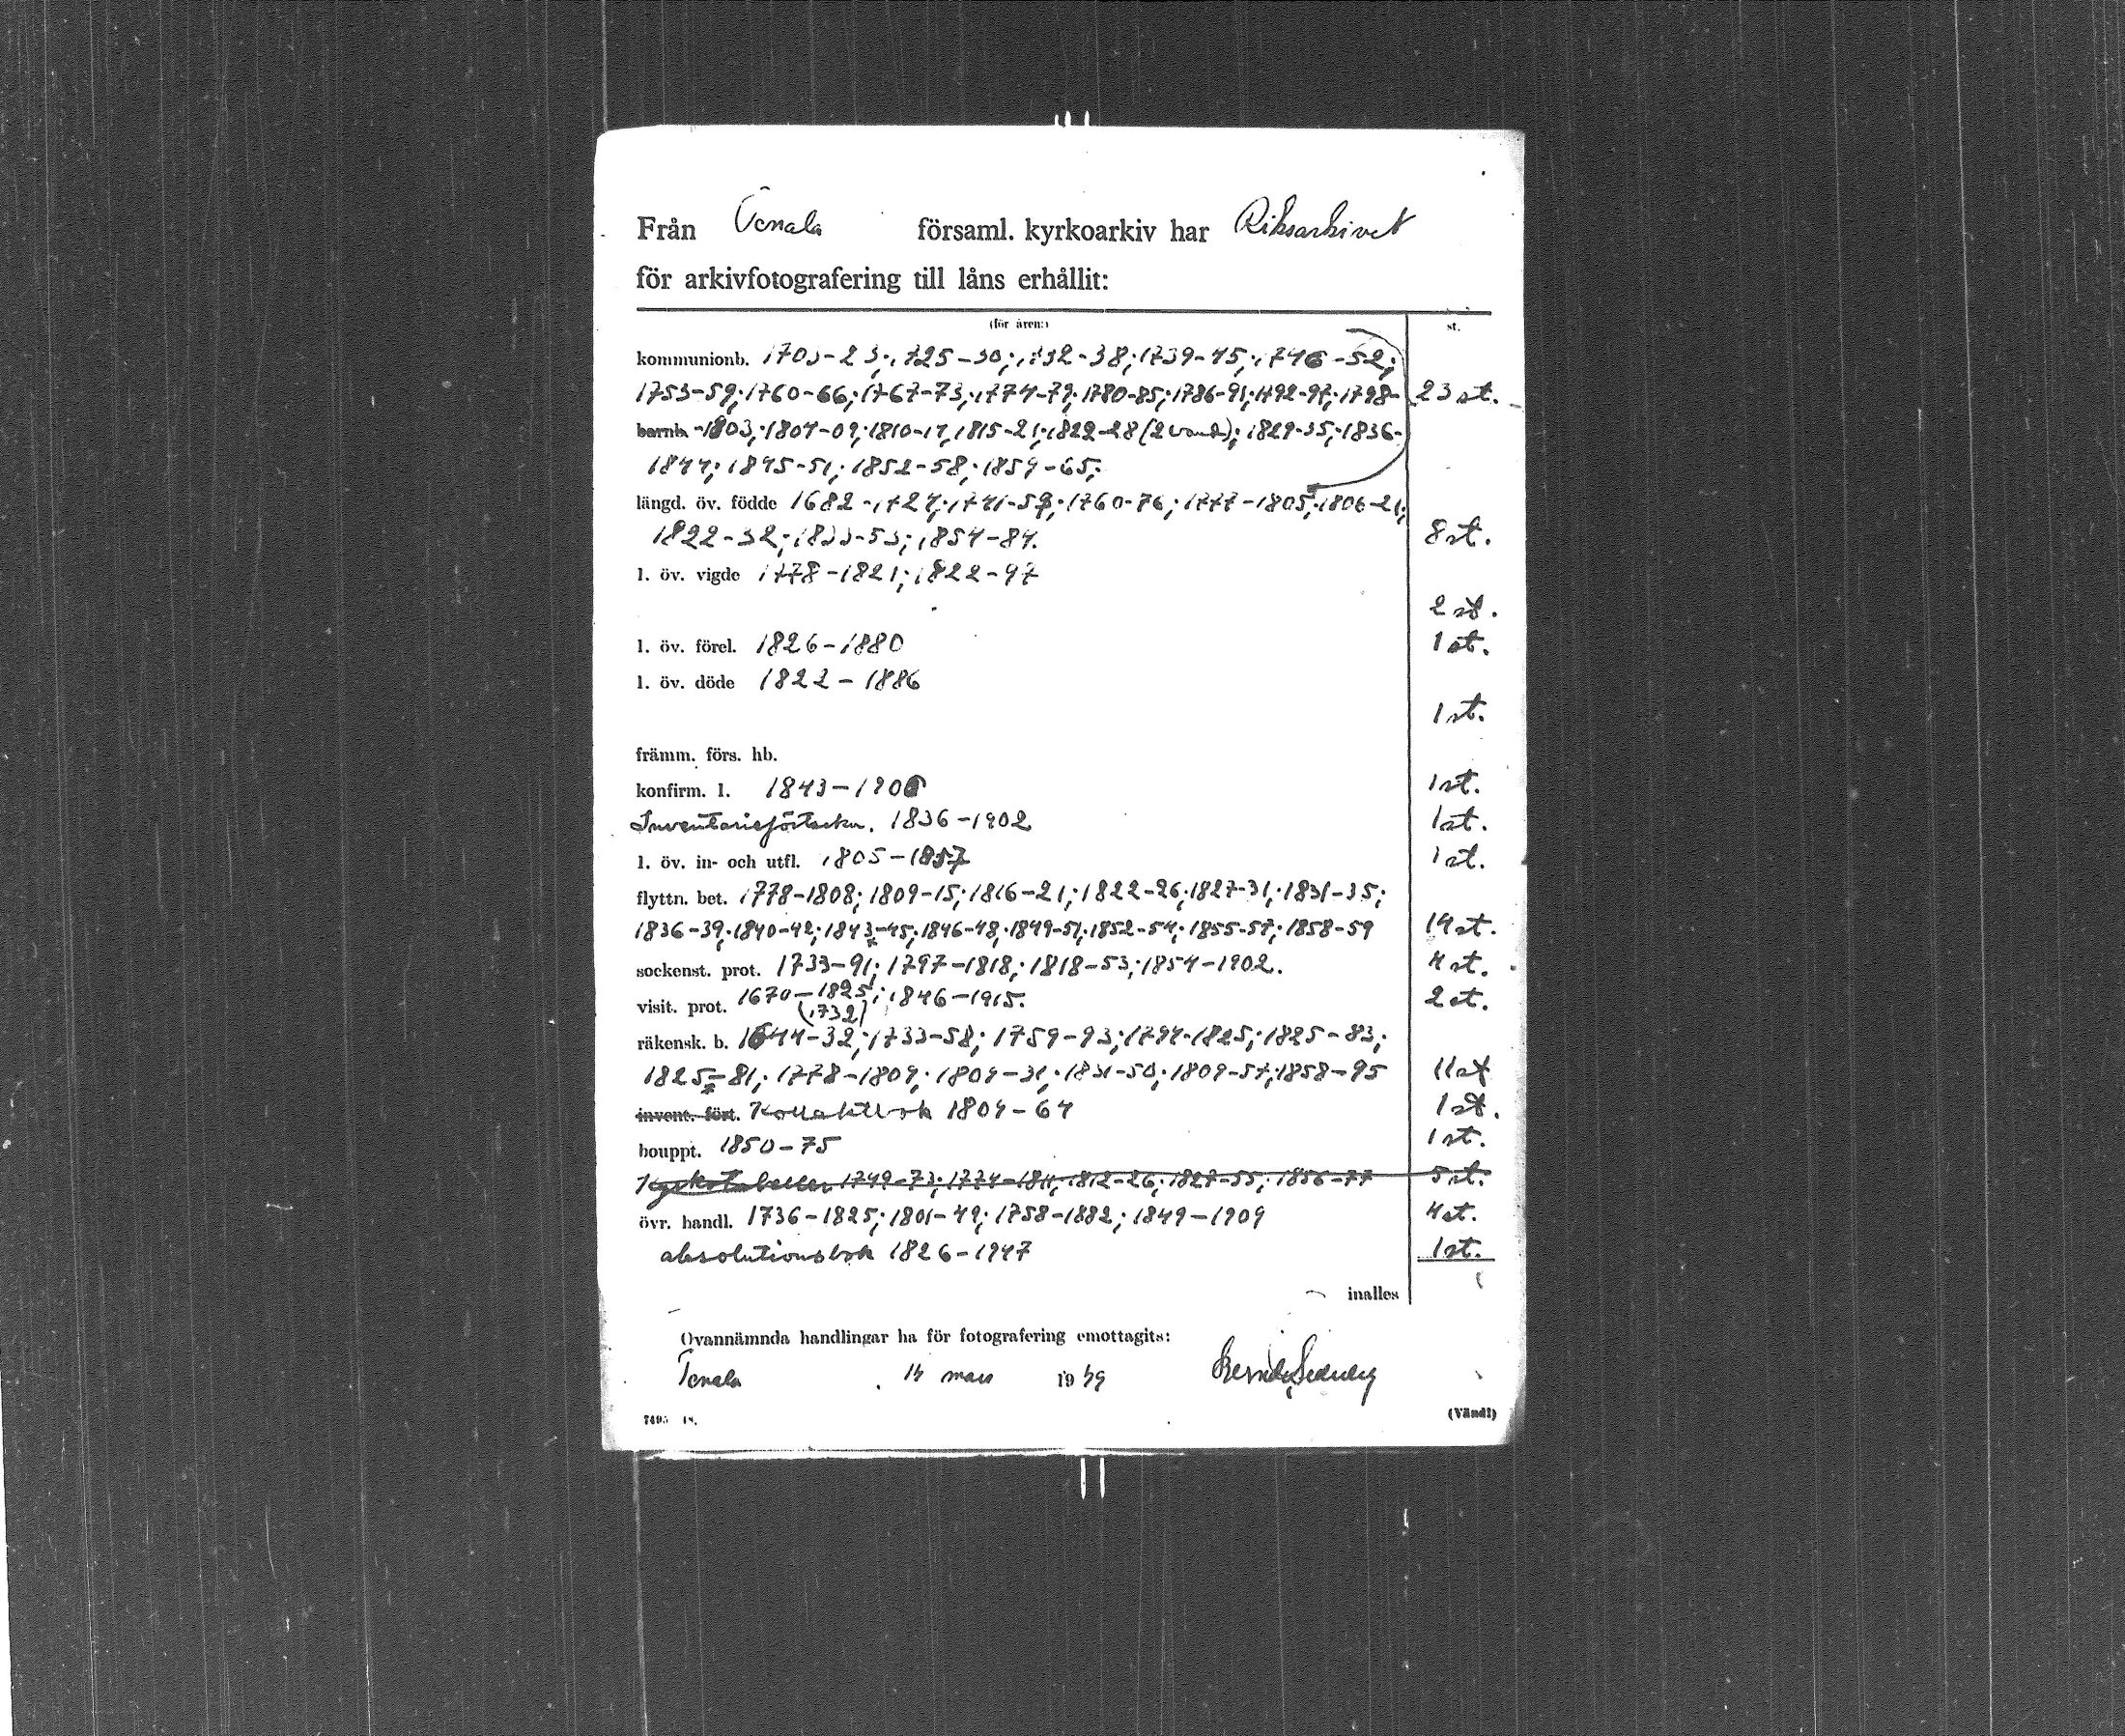 Från Tenala församl. kyrkoarkiv har Riksarkivet
för arkivfotografering till låns erhållit:
(för åren:) st.
kommunionb. 1703-23; 1725-30; 1732-38; 1739-45; 1746-52;
1753-59; 1760-66; 1767-73; 1774-79; 1780-85; 1786-91; 1792-97; 1798- 23 st.
barnb. -1803; 1804-09; 1810-14, 1815-21; 1822-28 (2 band); 1829-35; 1836-
1844; 1845-51; 1852-58; 1859-65;
längd. öv. födde 1682-1727; 1741-59; 1760-76; 1777-1805; 1806-21;
1822-32; 1833-53; 1854-84. 8 st.
l. öv. vigde 1778-1821; 1822-97
2 st.
l. öv. förel. 1826-1880 1 st.
l. öv. döde 1822-1886
1 st.
främm. förs. hb.
konfirm. l. 1843-1906 1 st.
Inventarieförteckn. 1836-1902 1 st.
l. öv. in- och utfl. 1805-1857 1 st.
flyttn. bet. 1778-1808; 1809-15; 1816-21; 1822-26; 1827-31; 1831-35;
1836-39; 1840-42; 1843-45; 1846-48; 1849-51; 1852-54; 1855-57; 1858-59 14 st.
sockenst. prot. 1733-91; 1797-1818; 1818-53; 1854-1902. 4 st.
visit. prot. 1670-1825; 1846-1915. 2 st.
(1732)
räkensk. b. 1644-32; 1733-58; 1759-93; 1794-1825; 1825-83;
1825-81; 1778-1809; 1809-31; 1831-50; 1809-57; 1858-95 11 st
invent. fört. Kollektbok 1804-64 1 st.
bouppt. 1850-75 1 st.
Kyrkotabeller 1749-73; 1774-1811; 1812-26; 1827-55; 1856-77 5 st.
övr. handl. 1736-1825; 1801-49; 1758-1882; 1849-1909 4 st.
absolutionsbok 1826-1947 1 st.
inalles
Ovannämnda handlingar ha för fotografering emottagits:
Tenala 14 mars 1949
7495 48. (Vänd!)